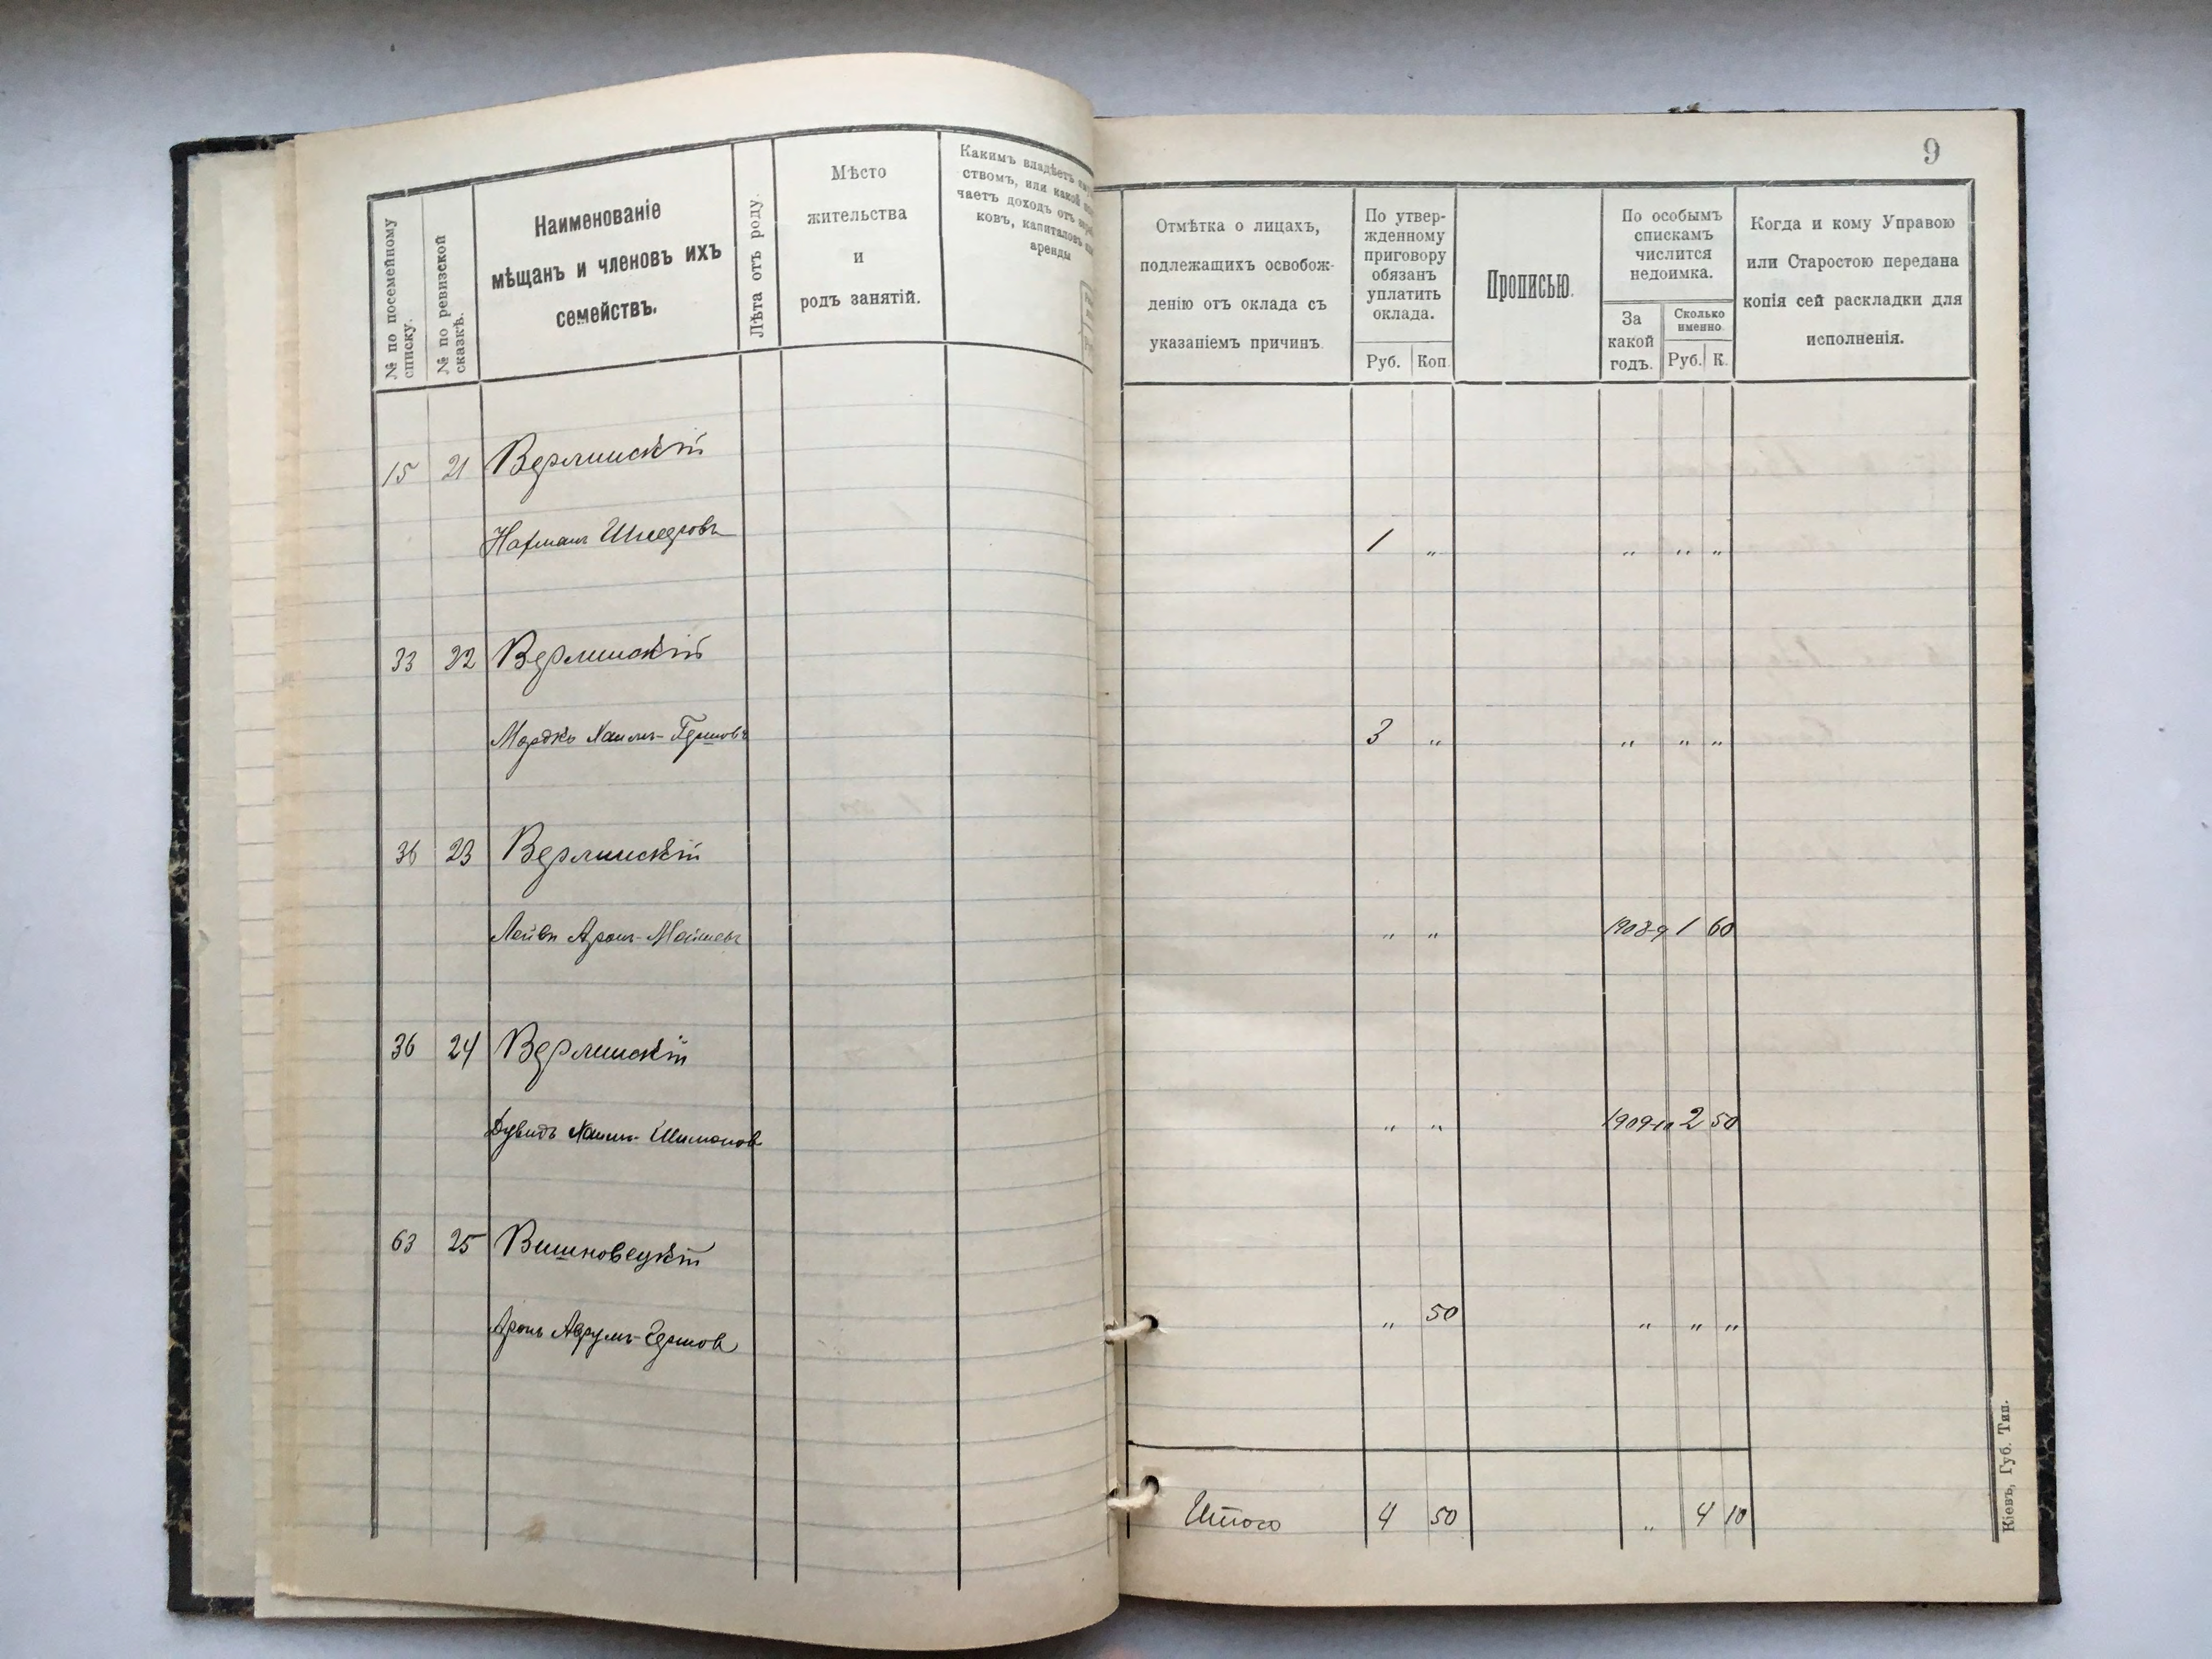 9
№ по посемейному
списку.
№ по ревизской
сказкѣ.
Наименованіе
мѣщанъ и членовъ ихъ
семействъ.
Лѣта отъ роду.
Мѣсто
жительства
и
родъ занятій.
Какимъ владѣетъ
ствомъ, или какой
чаетъ доходъ отъ
ковъ, капиталовъ
аренды
Отмѣтка о лицахъ,
подлежащихъ освобож-
денію отъ оклада съ
указаніемъ причинъ.
По утвер-
жденному
приговору
обязанъ
уплатить
оклада.
Руб. Коп.
Прописью.
По особымъ
спискамъ
числится
недоимка.
За
какой
годъ.
Сколько
именно.
Руб. К.
Когда и кому Управою
или Старостою передана
копія сей раскладки для
исполненія.
15 21 Верлинскій
Нахман 1 „ „ „ „
33 22 Верлинскій
Мордко Хаимъ-Гершовъ 3 „ „ „ „
36 23 Верлинскій
Лейви Аронъ-Мошевъ „ „ 1908-9 1 60
36 24 Верлинскій
Дувидъ Хаимъ-Шимонов „ „ 1909-10 2 50
63 25 Вишновецкій
Аронъ Аврумъ-Гершов „ 50 „ „ „
Итого 4 50 „ 4 10
Кіевъ, Губ. Тип.